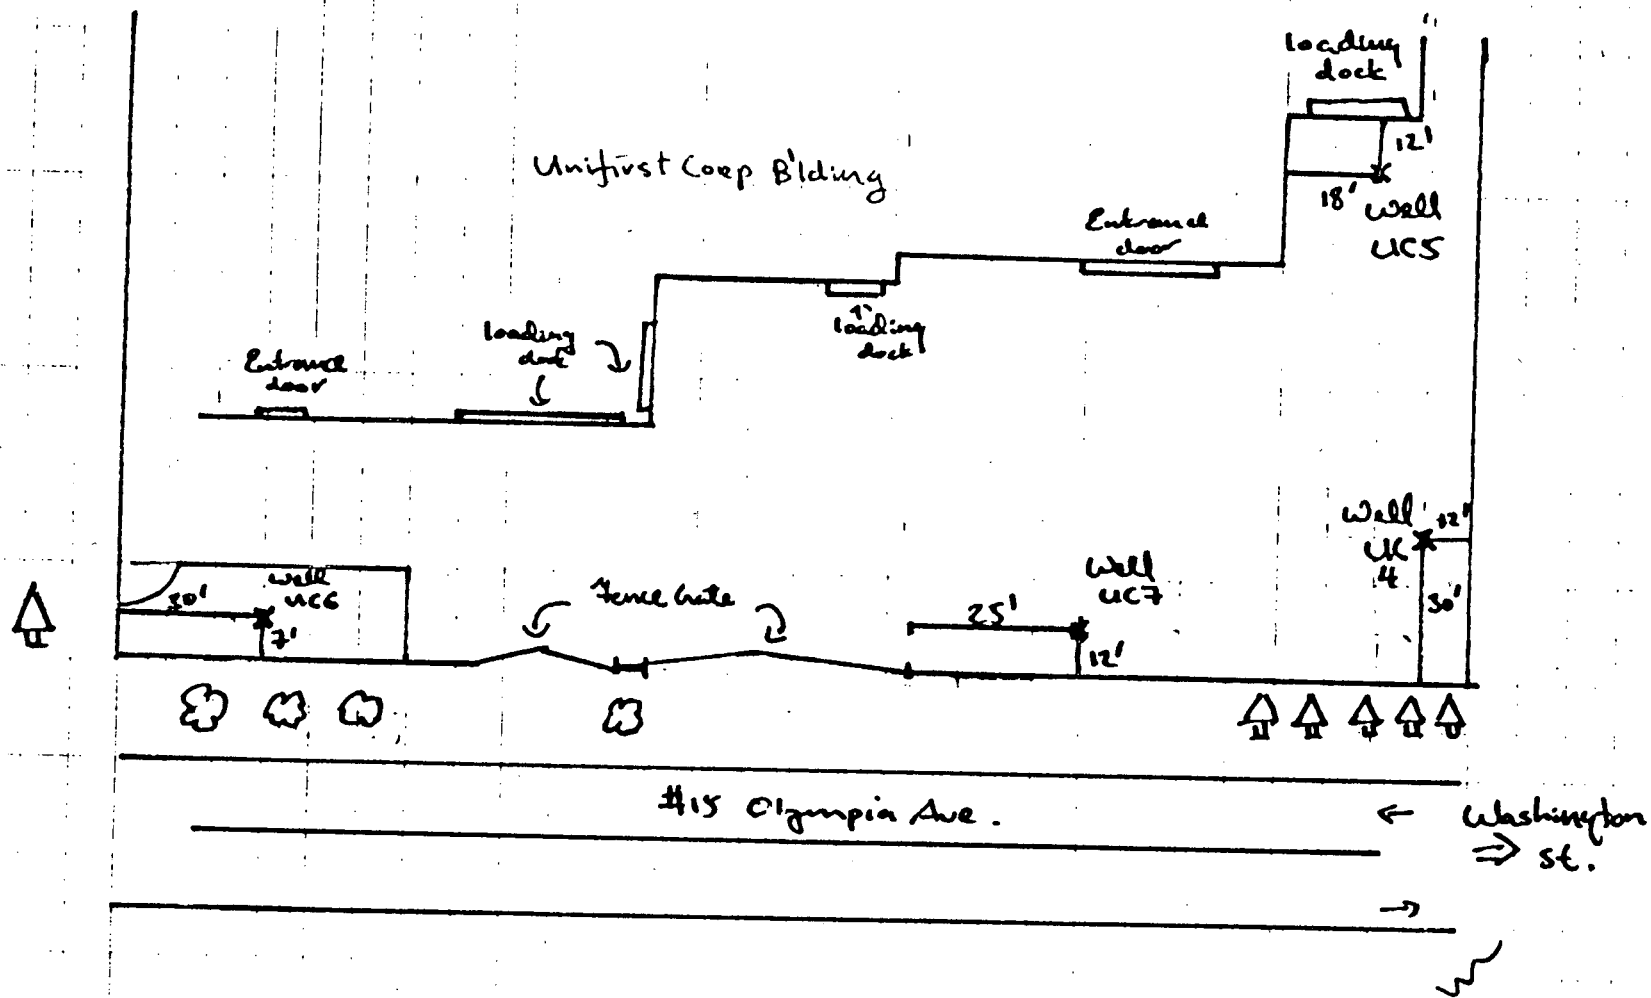 loading
dock
12'
Unifirst Coop B'lding
18'
Well
UC5
Entrance
door
loading
dock
loading
dock
Entrance
door
Well
UC
4
12'
30'
Well
UC7
25'
12'
Fence Gate
well
UC6
30'
7'
#15 Olympia Ave.
Washington
St.